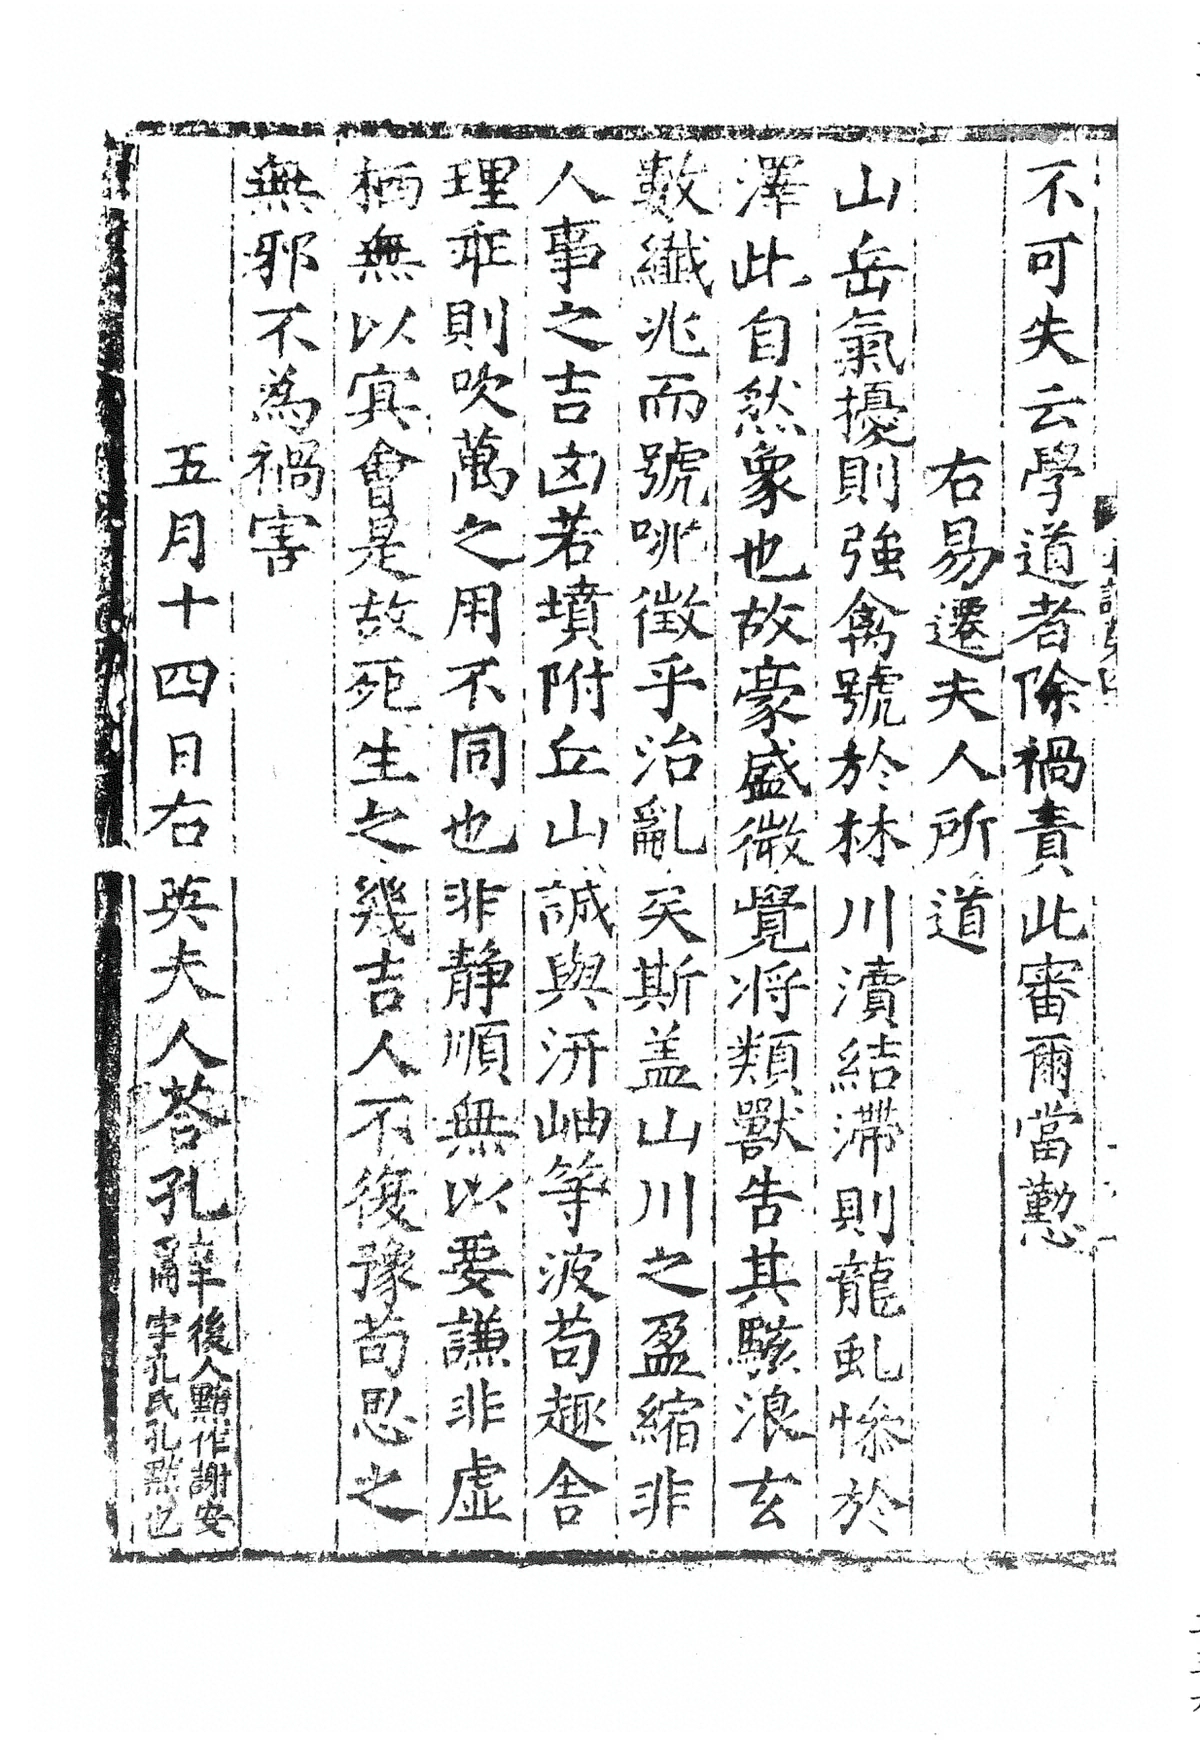 不可失云學道者除禍責此審爾當懃
右易遷夫人所道
山岳氣擾則強禽號於林川瀆結滯則龍虬慘於
澤此自然象也故豪盛微覺将類獸告其駭浪玄
數纖兆而號咷徵乎治亂矣斯盖山川之盈縮非
人事之吉凶若墳附丘山誠與汧岫等波苟趣舍
理乖則吹萬之用不同也非静順無以要謙非虚
栖無以寘會是故死生之幾吉人不復豫苟思之
無邪不為禍害
五月十四日右英夫人荅孔辭
後人黵作謝安
字孔氏孔黙也